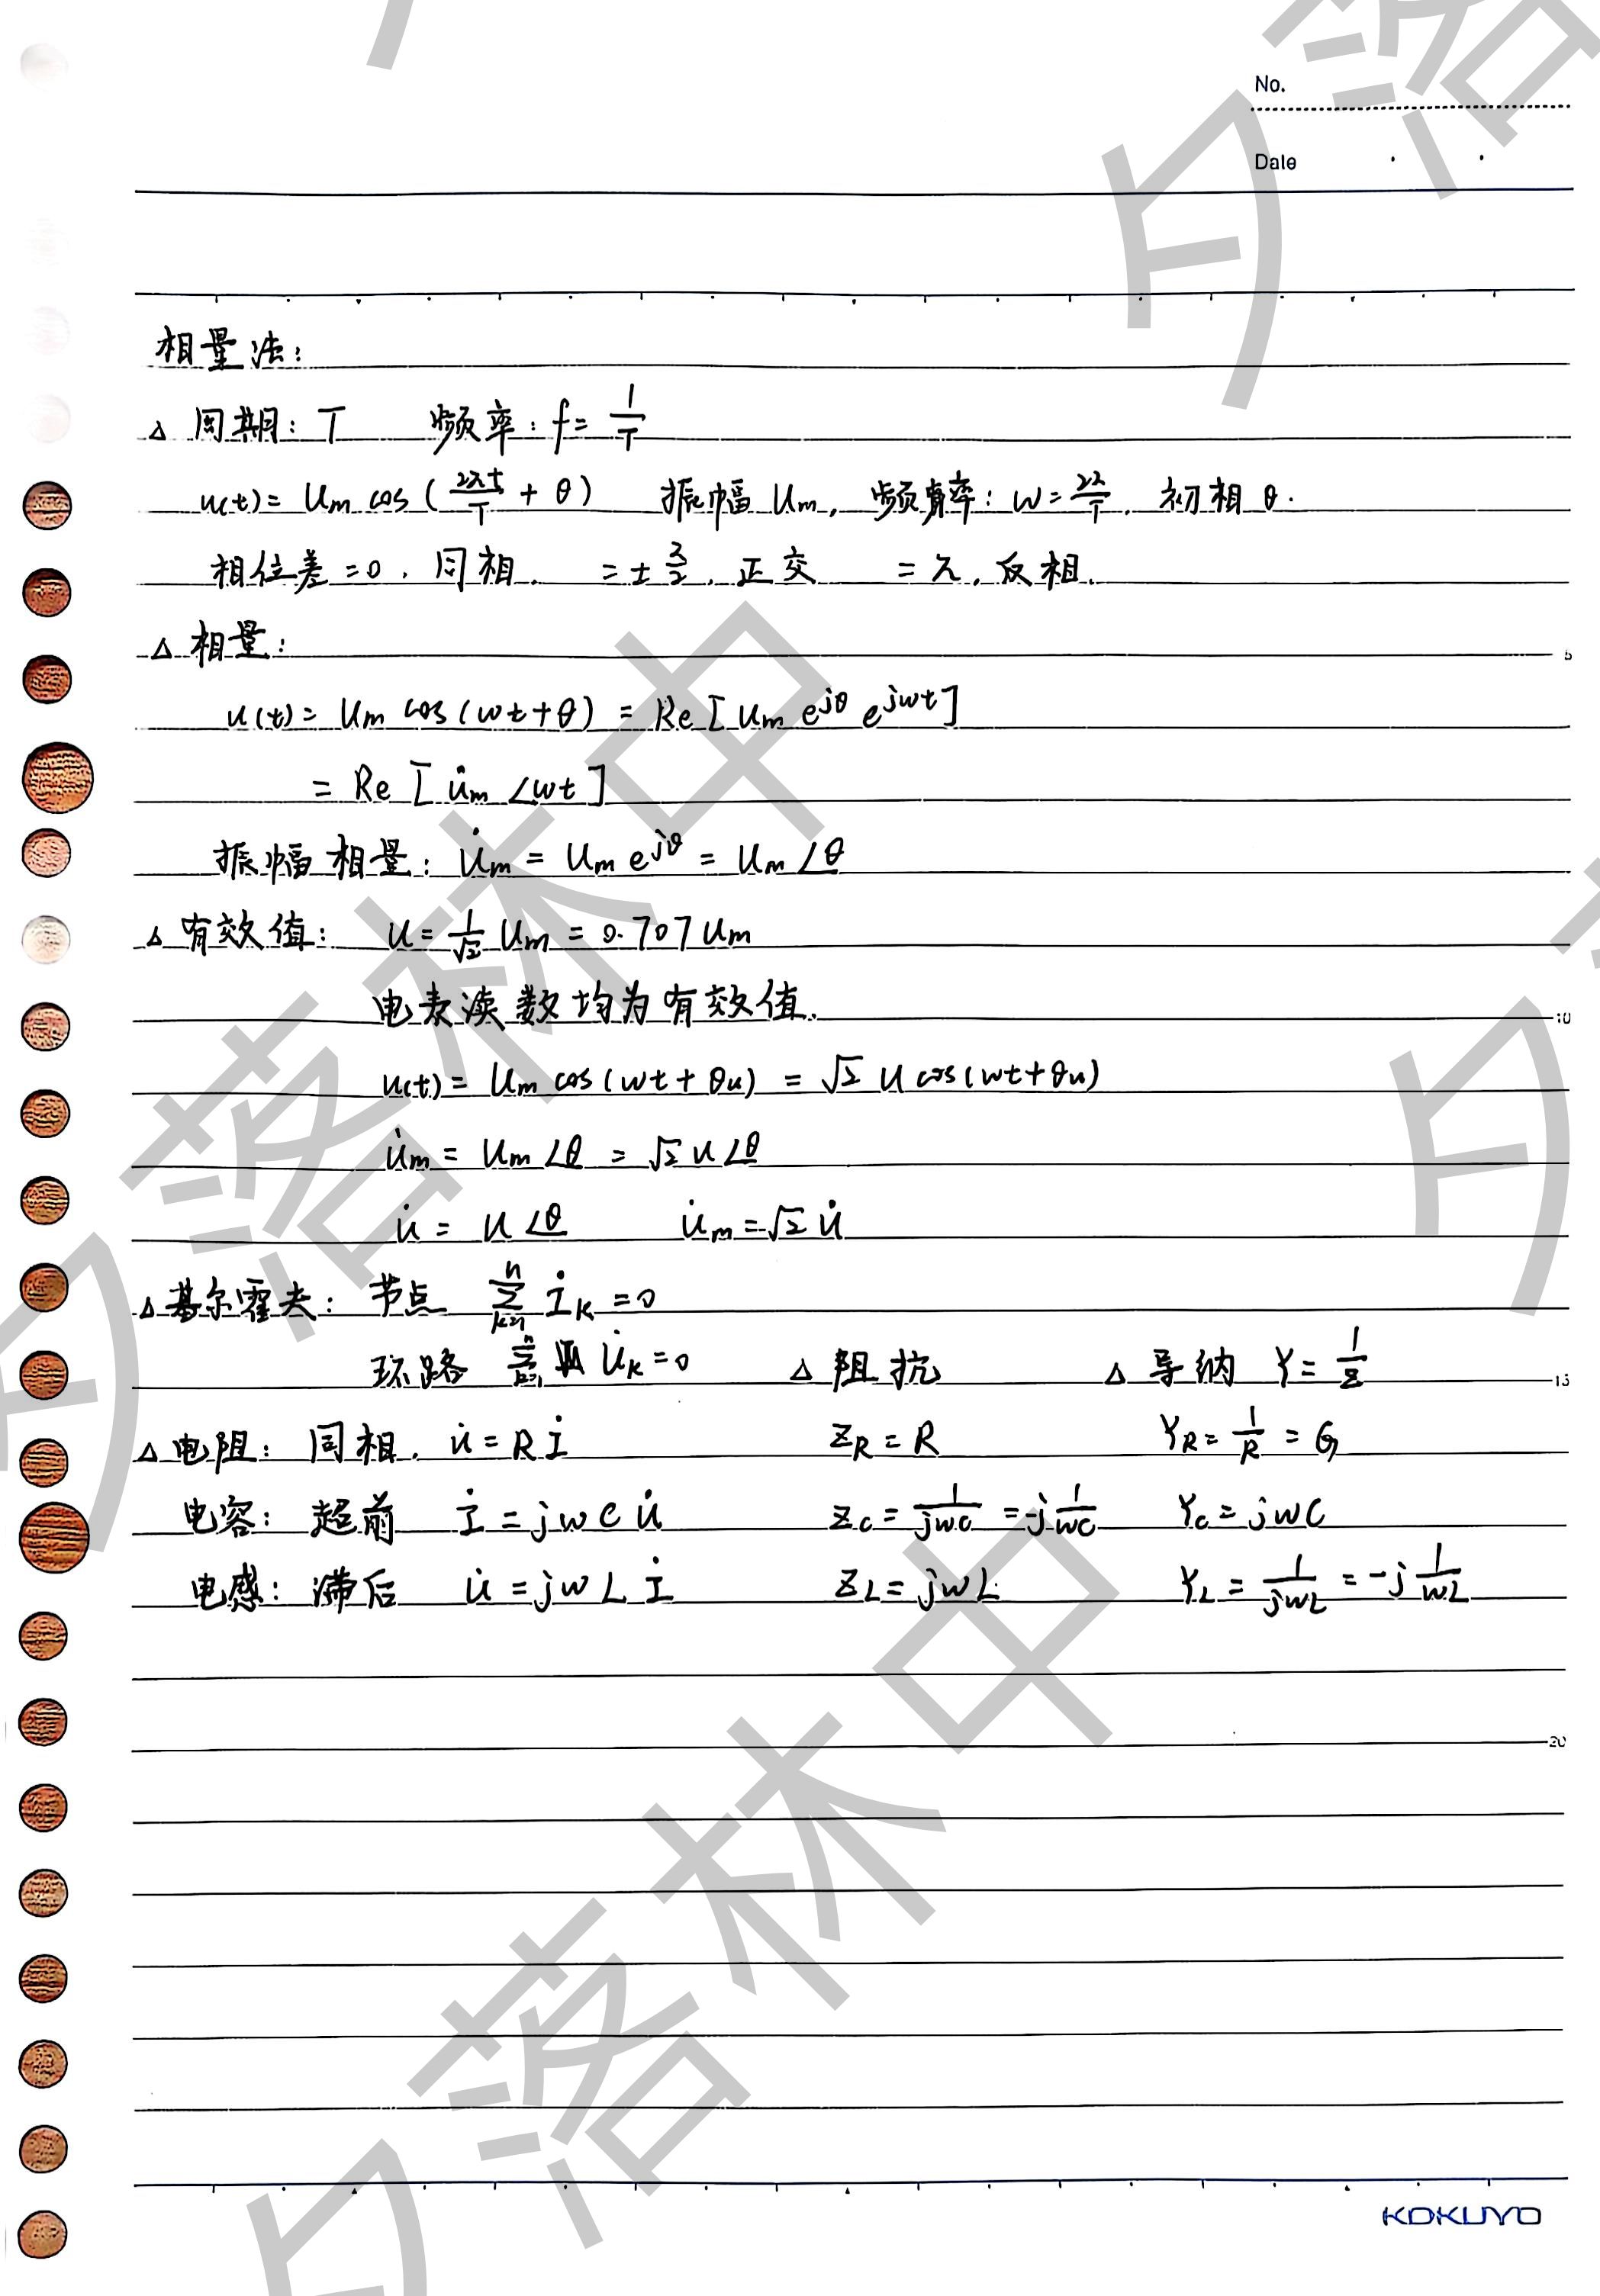 No.
Date
相量法:
△ 周期: T 频率: f = 1/T
u(t) = Um cos(2πt/T + θ) 振幅 Um, 频率: ω = 2π/T, 初相 θ.
相位差 = 0, 同相. = ± π/2, 正交 = π, 反相.
△ 相量:
u(t) = Um cos(ωt+θ) = Re[Um e^{jθ} e^{jωt}]
= Re[U̇m ∠ωt]
振幅相量: U̇m = Um e^{jθ} = Um ∠θ
△ 有效值: U = 1/√2 Um = 0.707 Um
电表读数均为有效值.
u(t) = Um cos(ωt+θu) = √2 U cos(ωt+θu)
U̇m = Um ∠θ = √2 U ∠θ
U̇ = U ∠θ U̇m = √2 U̇
△ 基尔霍夫: 节点 ∑_{k=1}^{n} İk = 0
环路 ∑_{k=1}^{n} U̇k = 0 △ 阻抗 △ 导纳 Y = 1/Z
△ 电阻: 同相. U̇ = R İ ZR = R YR = 1/R = G
电容: 超前 İ = jωC U̇ Zc = 1/jωC = -j 1/ωC Yc = jωC
电感: 滞后 U̇ = jωL İ ZL = jωL YL = 1/jωL = -j 1/ωL
5
10
15
20
KOKUYO
夕落林中